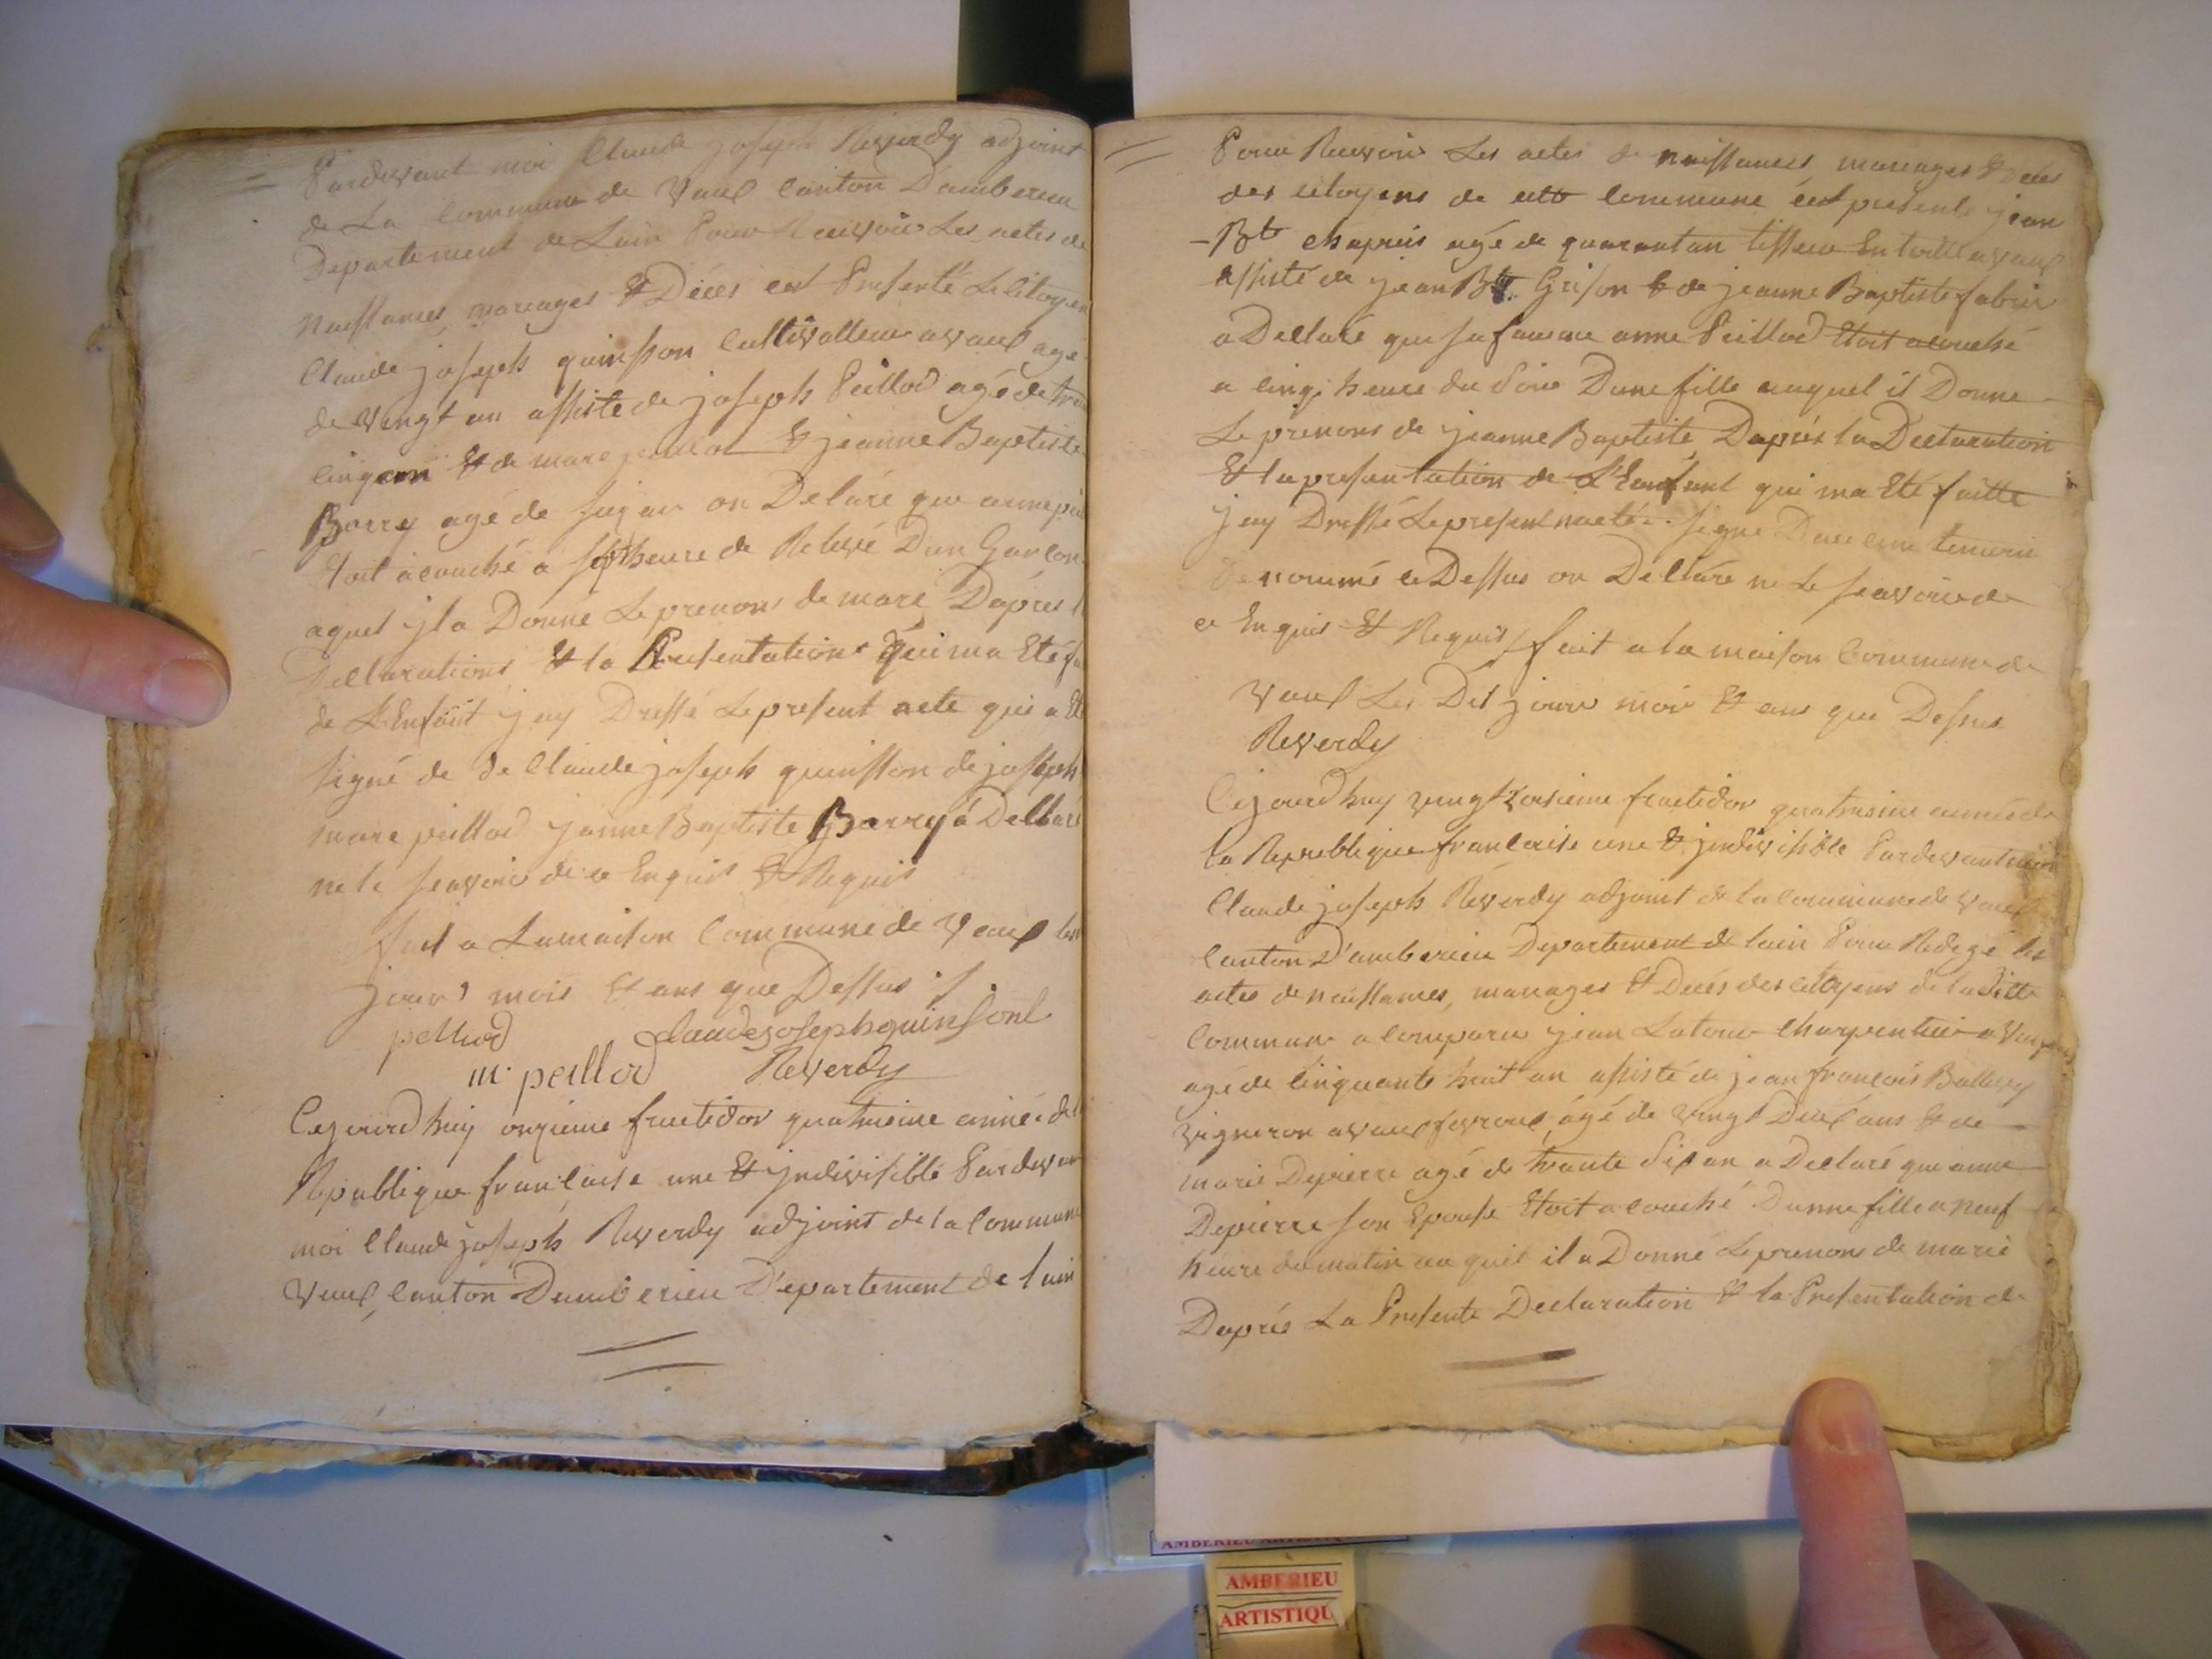 Pardevant moi Claude joseph Reverdy adjoint
de La Commune de Vaux Canton D'amberieu
Departement de Lain Pour Recevoir Les actes de
naissances, mariages & Décès est Presenté Le Citoyen
Claude joseph quinsson Cultivatteur a vaux agé
de vingt an assisté de joseph Peillod agé de
cinq an & de marc peillod & jeanne Baptiste
Borrey agé de an on Delaré que anne
Etoit acouché a sept heure de Relevé Dun Garcon
aquel jl a Donné Le prenom de marc Dapres
Declarations & la Presentation qui ma Eté
de L'Enfant jay Dressé Le present acte qui a Eté
signé de De Claude joseph quinsson de joseph
marc peillod janne Baptiste Borrey a Dellaré
ne le scavoir de ce Enquis & Requis
fait a La maison Commune de Vaux les
jours mois & ans que Dessus
peillod Claude joseph quinsont
m. peillod Reverdy
Cejourdhuy onzieme fructidor quatrieme année de
Republique francaise une & jndivisible Pardevant
moi Claude joseph Reverdy adjoint de la Commune
Vaux, Canton Damberieu D'epartement de lain
Pour Recevoir Les actes de naissances, mariages & Décès
des citoyens de cette Commune est presenté jean
-Bte chapuis agé de quarantan tisseur En toille a vaux
assisté de jean Bte Grison & de jeanne Baptiste fabrie
a Dellaré que sa famme anne Peillod Etoit acouché
a cinq heure du Soir Dune fille auquel il Donne
Le prenons de jeanne Baptiste Daprés la Declaration
& la presentation de L'Eanfant qui ma Eté faitte
jay Dressé Le present acte. signé Daucun temoin
Denommé ce Dessus on Dellaré ne Le scavoir de
ce Enquis & Requis / fait a la maison Commune de
Vaux Les Dis jours mois & ans que Dessus
Reverdy
Cejourdhuy vingt troisieme fructidor quatrieme année de
la Republique francaise une & jndivisible Pardevant moi
Claude joseph Reverdy adjoint de la Commune de Vaux
Canton D'amberieu Departement de lain Pour Redegé les
actes de naissances, mariages & Decés des citoyens de la ditte
Commune a Comparu jean Latour Charpentier a Vaux
agé de cinquante huit an assisté de jean francois Ballivy
vigneron a vaux fevroux, agé de vingt Deux ans & de
marie Depierre agé de trante Six an a Declaré que anne
Depierre son Epouse Etoit acouché Dunne fille a neuf
heure du matin au quel il a Donné Le prenons de marie
Daprés La Presente Declaration & la Presentation de
AMBERIEU
AMBERIEU
ARTISTIQU